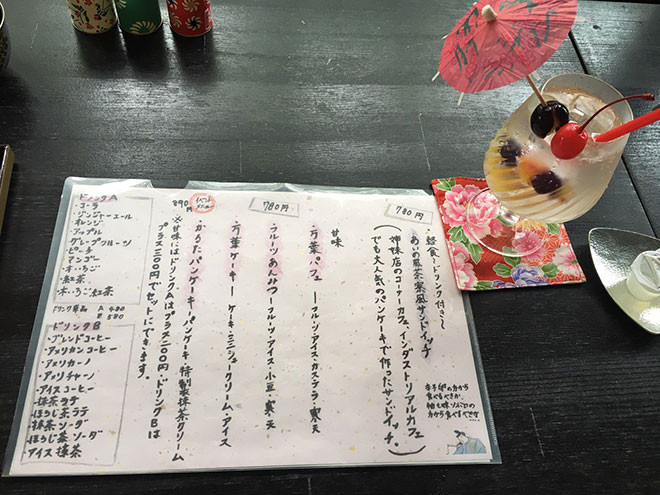 780円
軽食・ドリンク付き〜
あいの風茶寮風サンドイッチ
(姉妹店のコーナーカフェ、インダストリアルカフェ
でも大人気のパンケーキで作ったサンドイッチ。)
甘味
780円
・万葉パフェ ーフルーツ・アイス・カステラ・寒天
・フルーツあんみつーフルーツ・アイス・小豆・寒天
・万葉ケーキー ケーキ・ミニシュークリーム・アイス
890円
・かるたパンケーキーパンケーキ・特製抹茶クリーム
※甘味にはドリンクAはプラス二〇〇円・ドリンクBは
プラス三〇〇円でセットにできます。
ドリンクA
・コーラ
・ジンジャーエール
・オレンジ
・アップル
・グレープフルーツ
・ピーチ
・マンゴー
・木いちご
・紅茶
・木いちご紅茶
ドリンク単品 A 480
B 580
ドリンクB
・ブレンドコーヒー
・アメリカンコーヒー
・アメリカーノ
・アメリチャーノ
・アイスコーヒー
・抹茶ラテ
・ほうじ茶ラテ
・抹茶ソーダ
・ほうじ茶ソーダ
・アイス抹茶